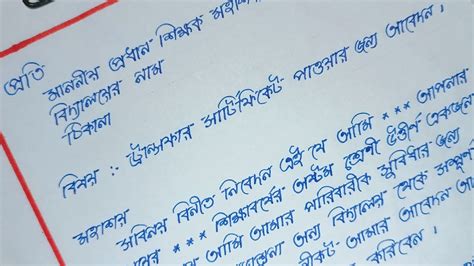 প্রতি
মাননীয় প্রধান শিক্ষক মহাশয়
বিদ্যালয়ের নাম
ঠিকানা
বিষয় :- ট্রান্সফার সার্টিফিকেট পাওয়ার জন্য আবেদন ।
মহাশয়
সবিনয় বিনীত নিবেদন এই যে আমি *** আপনার
*** শিক্ষাবর্ষের অষ্টম শ্রেণী উত্তীর্ণ একজন
আমি আমার পারিবারিক সুবিধার জন্য
অন্য বিদ্যালয় থেকে সম্পূর্ণ
আমার আবেদন
করিবেন ।